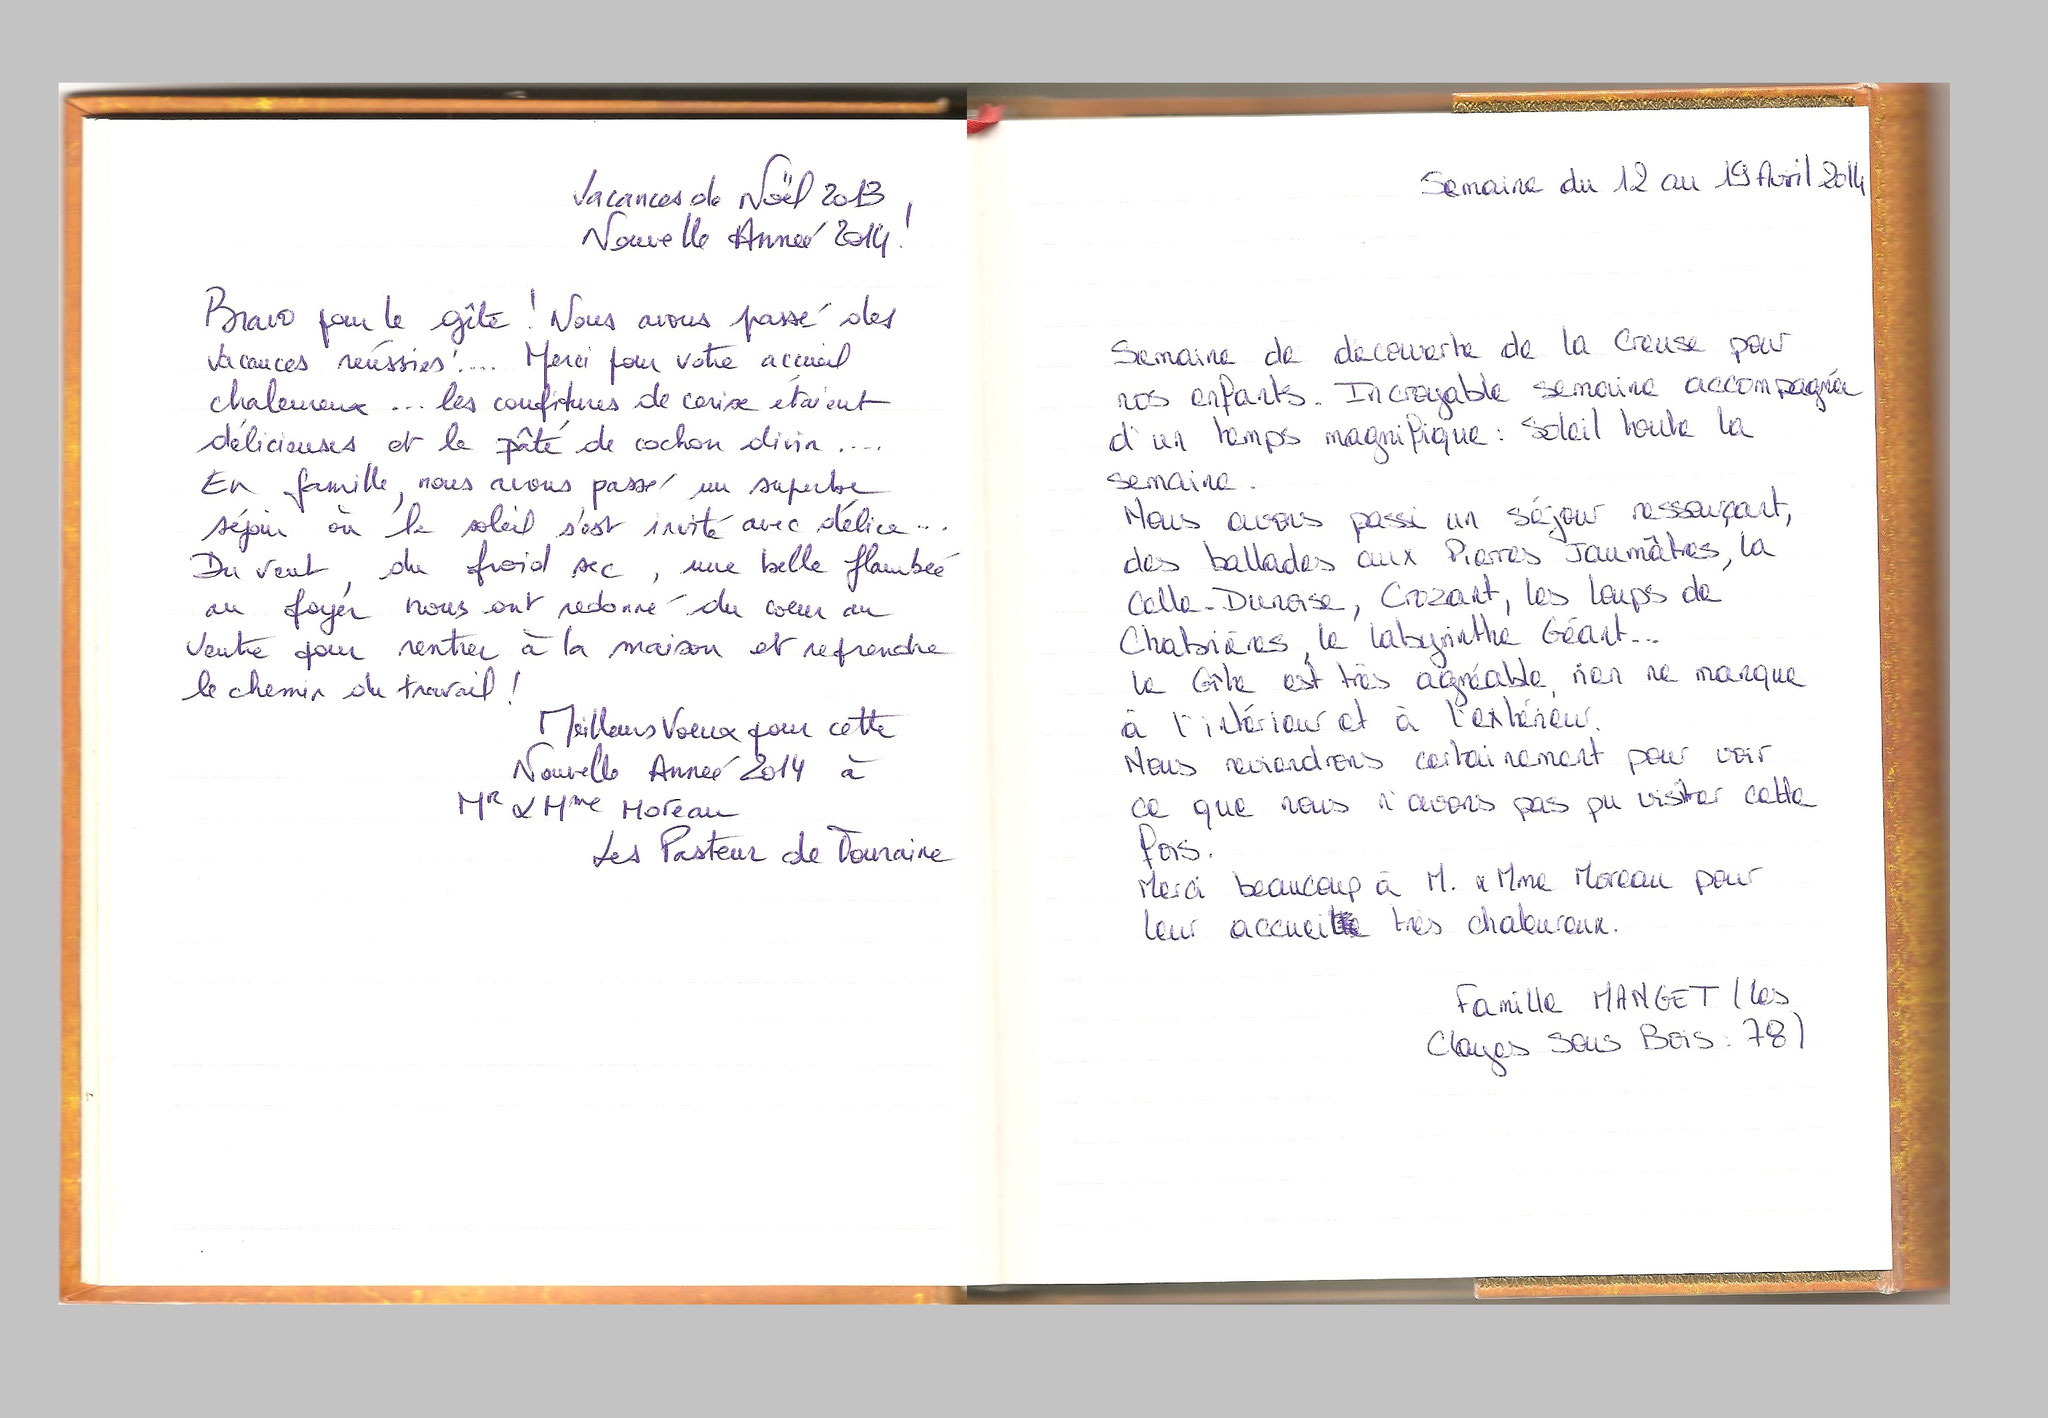 Vacances de Noël 2013
Nouvelle Année 2014 !
Bravo pour le gîte ! Nous avons passé des
vacances réussies !... Merci pour votre accueil
chaleureux ... les confitures de cerise étaient
délicieuses et le pâté de cochon divin ....
En famille, nous avons passé un superbe
séjour où le soleil s'est invité avec délice ...
Du vent, du froid sec, une belle flambée
au foyer nous ont redonné du coeur au
ventre pour rentrer à la maison et reprendre
le chemin du travail !
Meilleurs Voeux pour cette
Nouvelle Année 2014 à
Mr & Mme Moreau
Les Pasteur de Touraine
Semaine du 12 au 19 Avril 2014
Semaine de decouverte de la Creuse pour
nos enfants. Incroyable semaine accompagnée
d'un temps magnifique : Soleil toute la
semaine.
Nous avons passé un séjour ressourçant,
des ballades aux Pierres Jaumâtres, la
Celle-Dunoise, Crozant, les loups de
Chabrières, le labyrinthe Géant...
Le Gîte est très agréable, rien ne manque
à l'intérieur et à l'extérieur.
Nous reviendrons certainement pour voir
ce que nous n'avons pas pu visiter cette
fois.
Merci beaucoup à M. & Mme Moreau pour
leur accueil très chaleureux.
Famille MANGET (Les
Clayes Sous Bois : 78)